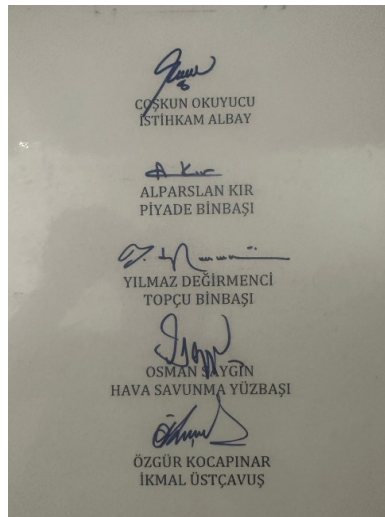 COŞKUN OKUYUCU
İSTİHKAM ALBAY
A Kır
ALPARSLAN KIR
PİYADE BİNBAŞI
YILMAZ DEĞİRMENCİ
TOPÇU BİNBAŞI
OSMAN SAYGIN
HAVA SAVUNMA YÜZBAŞI
ÖZGÜR KOCAPINAR
İKMAL ÜSTÇAVUŞ